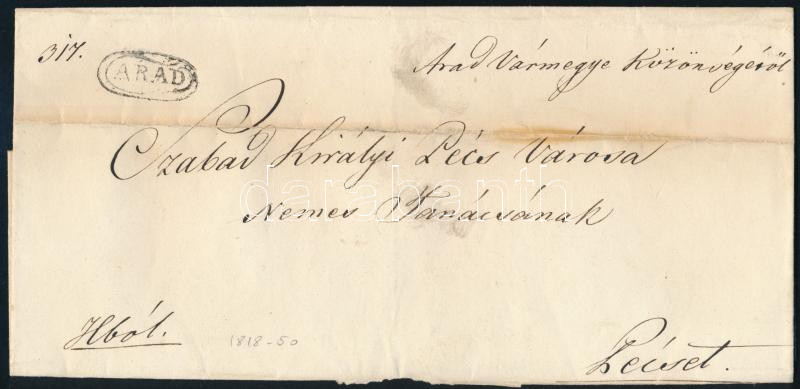 317.
ARAD
Arad Vármegye Közönségéről
Szabad Királyi Pécs Városa
Nemes Tanácsának
darabanth
Hból.
1818-50
Pécset.